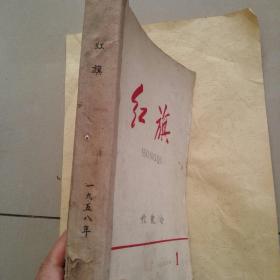 红旗
一九五八年
红旗
HONGQI
1